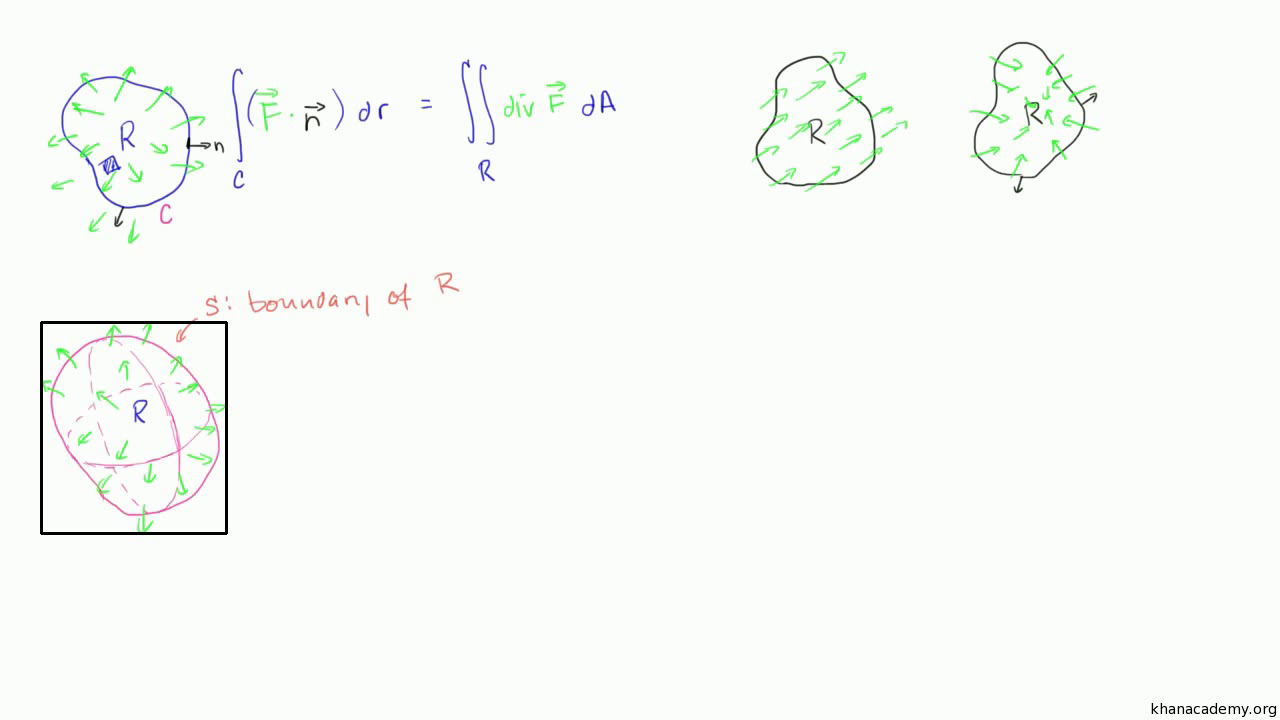 R
n
C
∫ (F⃗ · n⃗) dr = ∬ div F⃗ dA
C
R
R
R
S: boundary of R
R
khanacademy.org